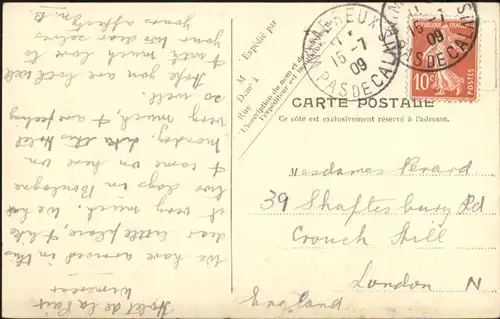 CARTE POSTALE
Ce côté est exclusivement réservé à l'adresse.
M. Expédié par
M
Dom^é à
Rue
L'inscription du nom et de
l'expéditeur est
WIMEREUX
15-7
09
PAS DE CALAIS
15-7
09
PAS DE CALAIS
10c
POSTES
Mesdames Perard
39 Shaftesbury Rd
Crouch Hill
London N
England
Hotel de la Paix
Wimereux
We have arrived in this
dear little place, & like
it very much. We had
two days in Boulogne
& came on here on
Monday. this Hotel
very much, & are feeling
so well.
Hope you are both well
& with much love to
your dear selves
yours affectly